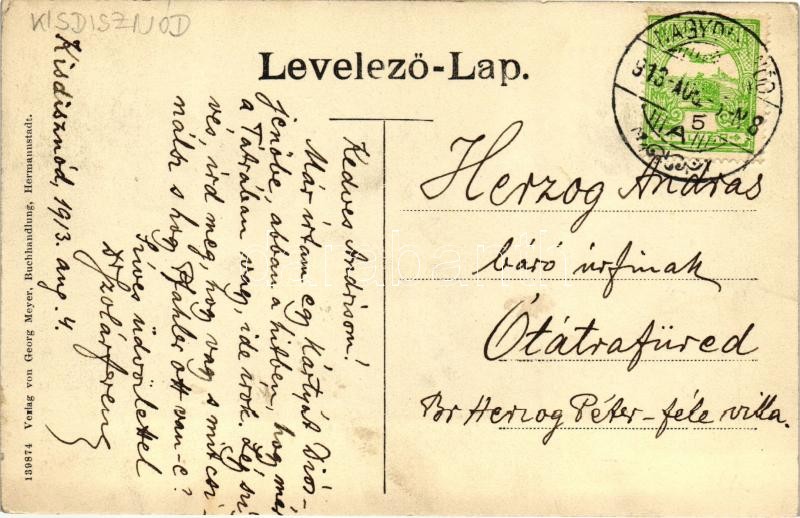 KISDISZNÓD
Levelező-Lap.
Kisdisznód, 1913. aug. 4.
Kedves Andrisom!
Már írtam egy kártyát Diós-
jenőbe, abban a hitben, hogy már
a Tátrában vagy, ide írok. Légy szí
ves, írd meg, hogy vagy s mit csi-
nálsz s hogy Pfahler ott van-e?
Szíves üdvözlettel
Szolár Ferenc
Herzog András
báró úrfinak
Ótátrafüred
Br Herzog Péter-féle villa.
NAGYDISZNÓD
913 AUG
5
A
139874 Verlag von Georg Meyer, Buchhandlung, Hermannstadt.
darabanth